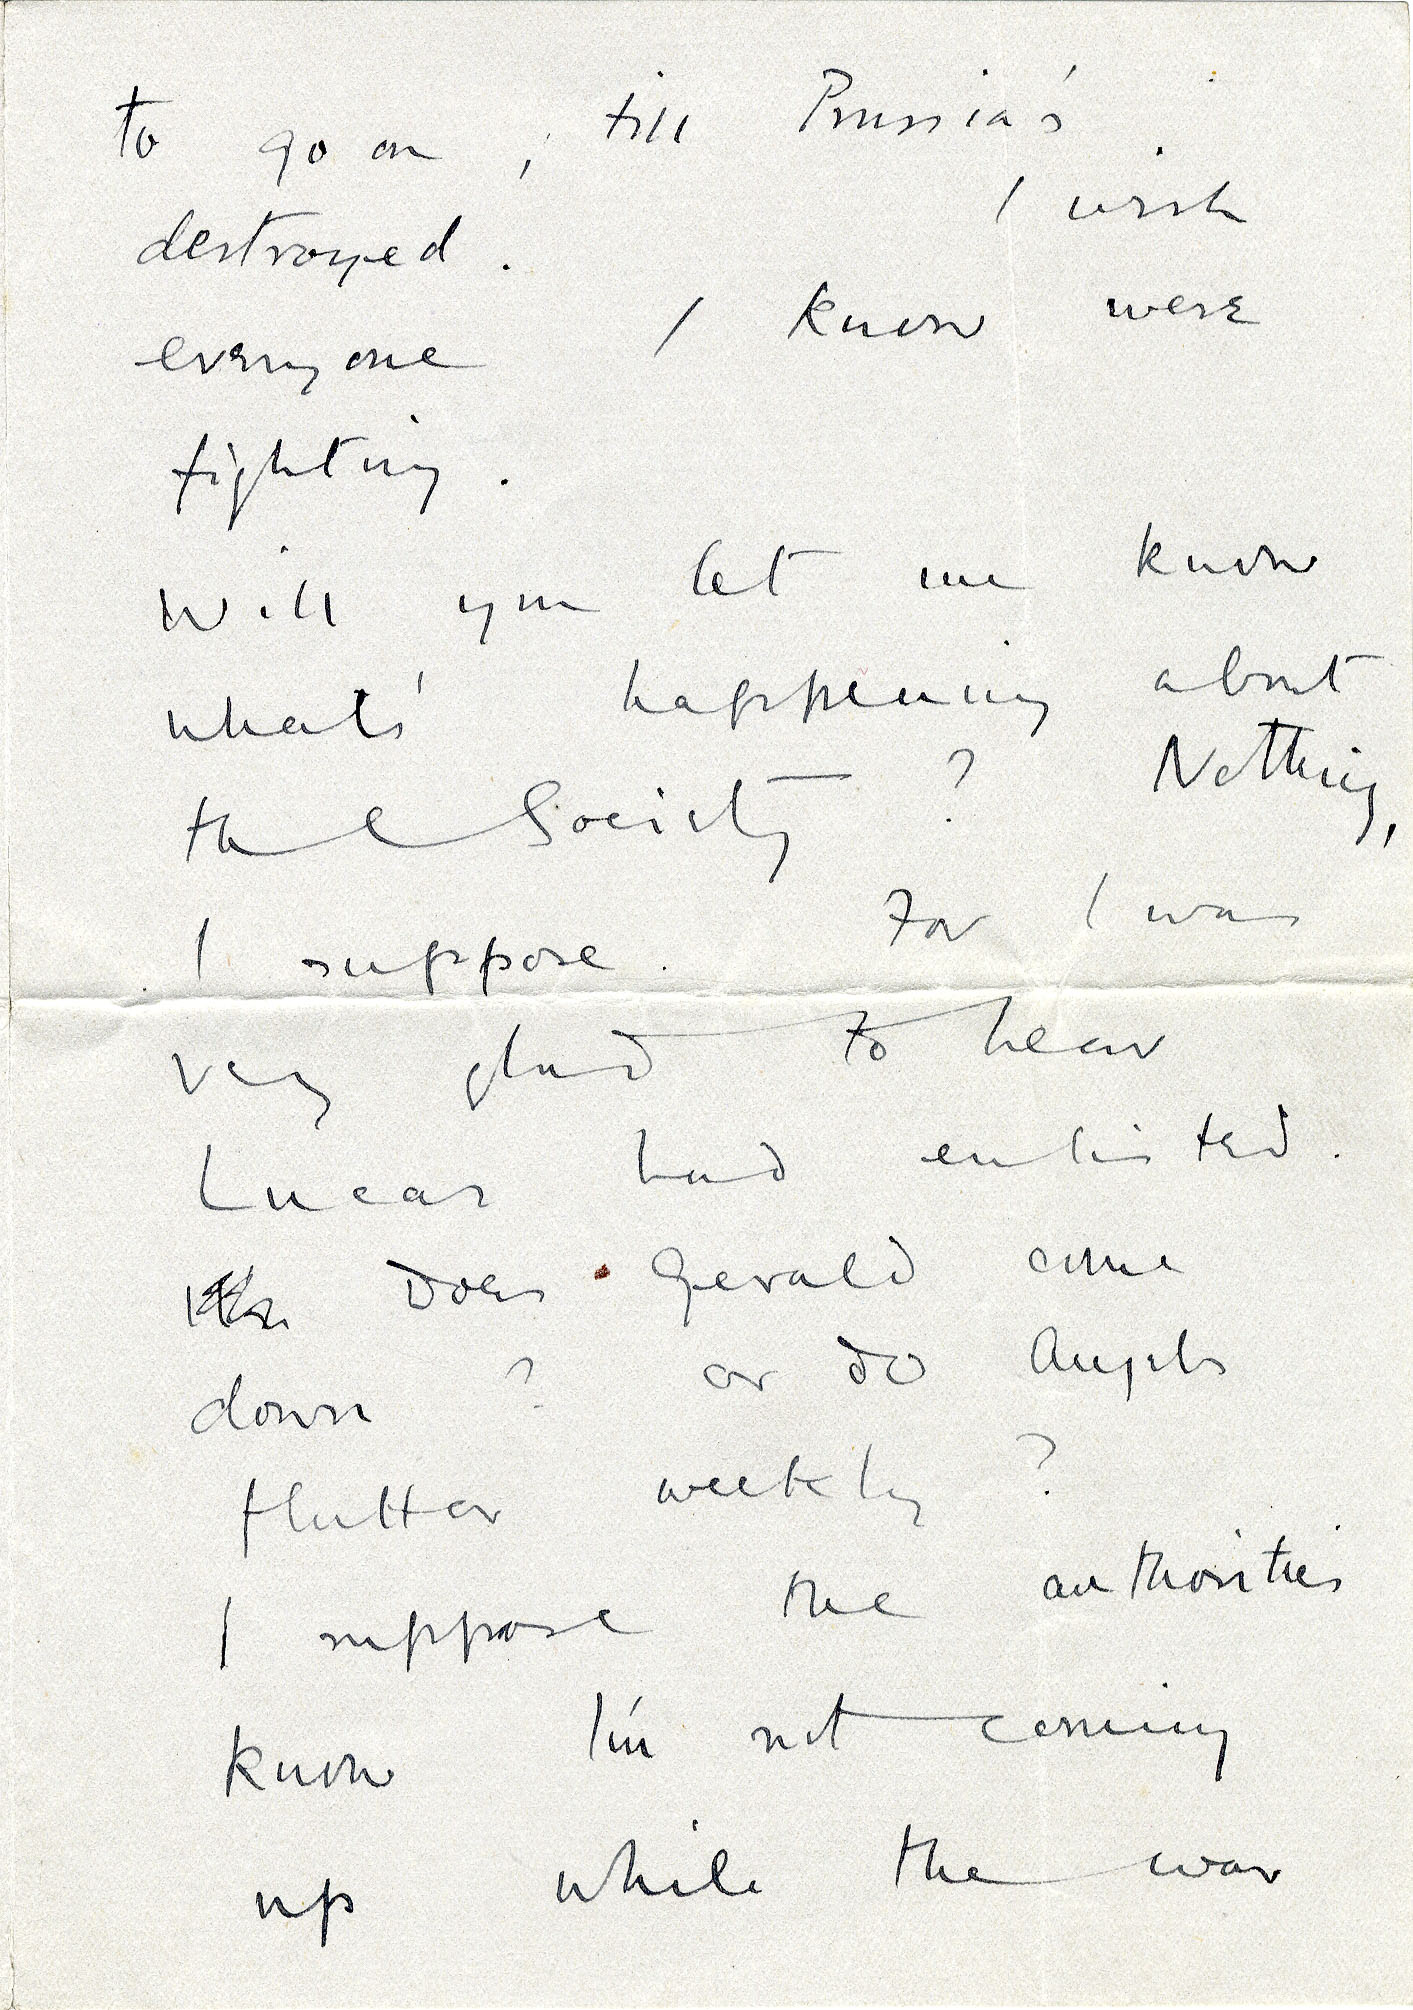 to go on, till Prussia's
destroyed. I wish
everyone I know were
fighting.
Will you let me know
what's happening about
the Society? Nothing,
I suppose. For I was
very glad to hear
Lucas had enlisted.
Does Gerald come
down? or do Angels
flutter weekly?
I suppose the authorities
know I'm not coming
up while the war